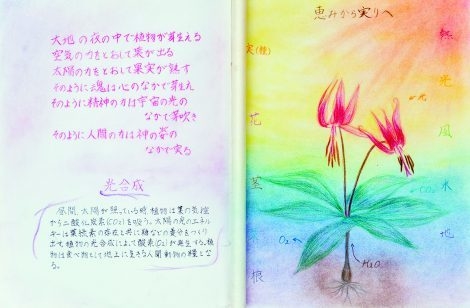 大地の夜の中で植物が芽生える
空気の力をとおして葉が出る
太陽の力をとおして果実が熟す
そのように魂は心のなかで芽生え
そのように精神の力は宇宙の光の
なかで芽吹き
そのように人間の力は神の
なかで実る
光合成
昼間、太陽が照っている時、植物は葉の気孔
から二酸化炭素(CO₂)を吸う。太陽の光のエネル
ギーは葉緑素の存在と共に糖などの養分をつくり
出す。植物の光合成によって酸素(O₂)が発生する。植
物は食べ物として地上に生きる人間、動物の糧とな
る。
恵みから実りへ
実(種)
花
茎
根
熱
光
風
水
地
光
CO₂
O₂
H₂O